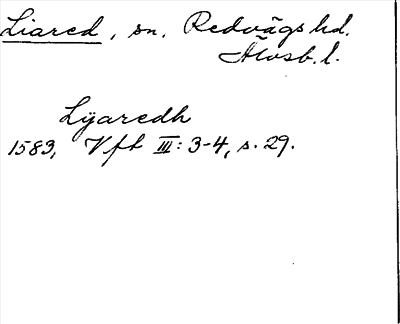 Liared, sn. Redvägs hd.
Älvsb. l.
Lÿaredh
1583, Vft III: 3-4, s. 29.